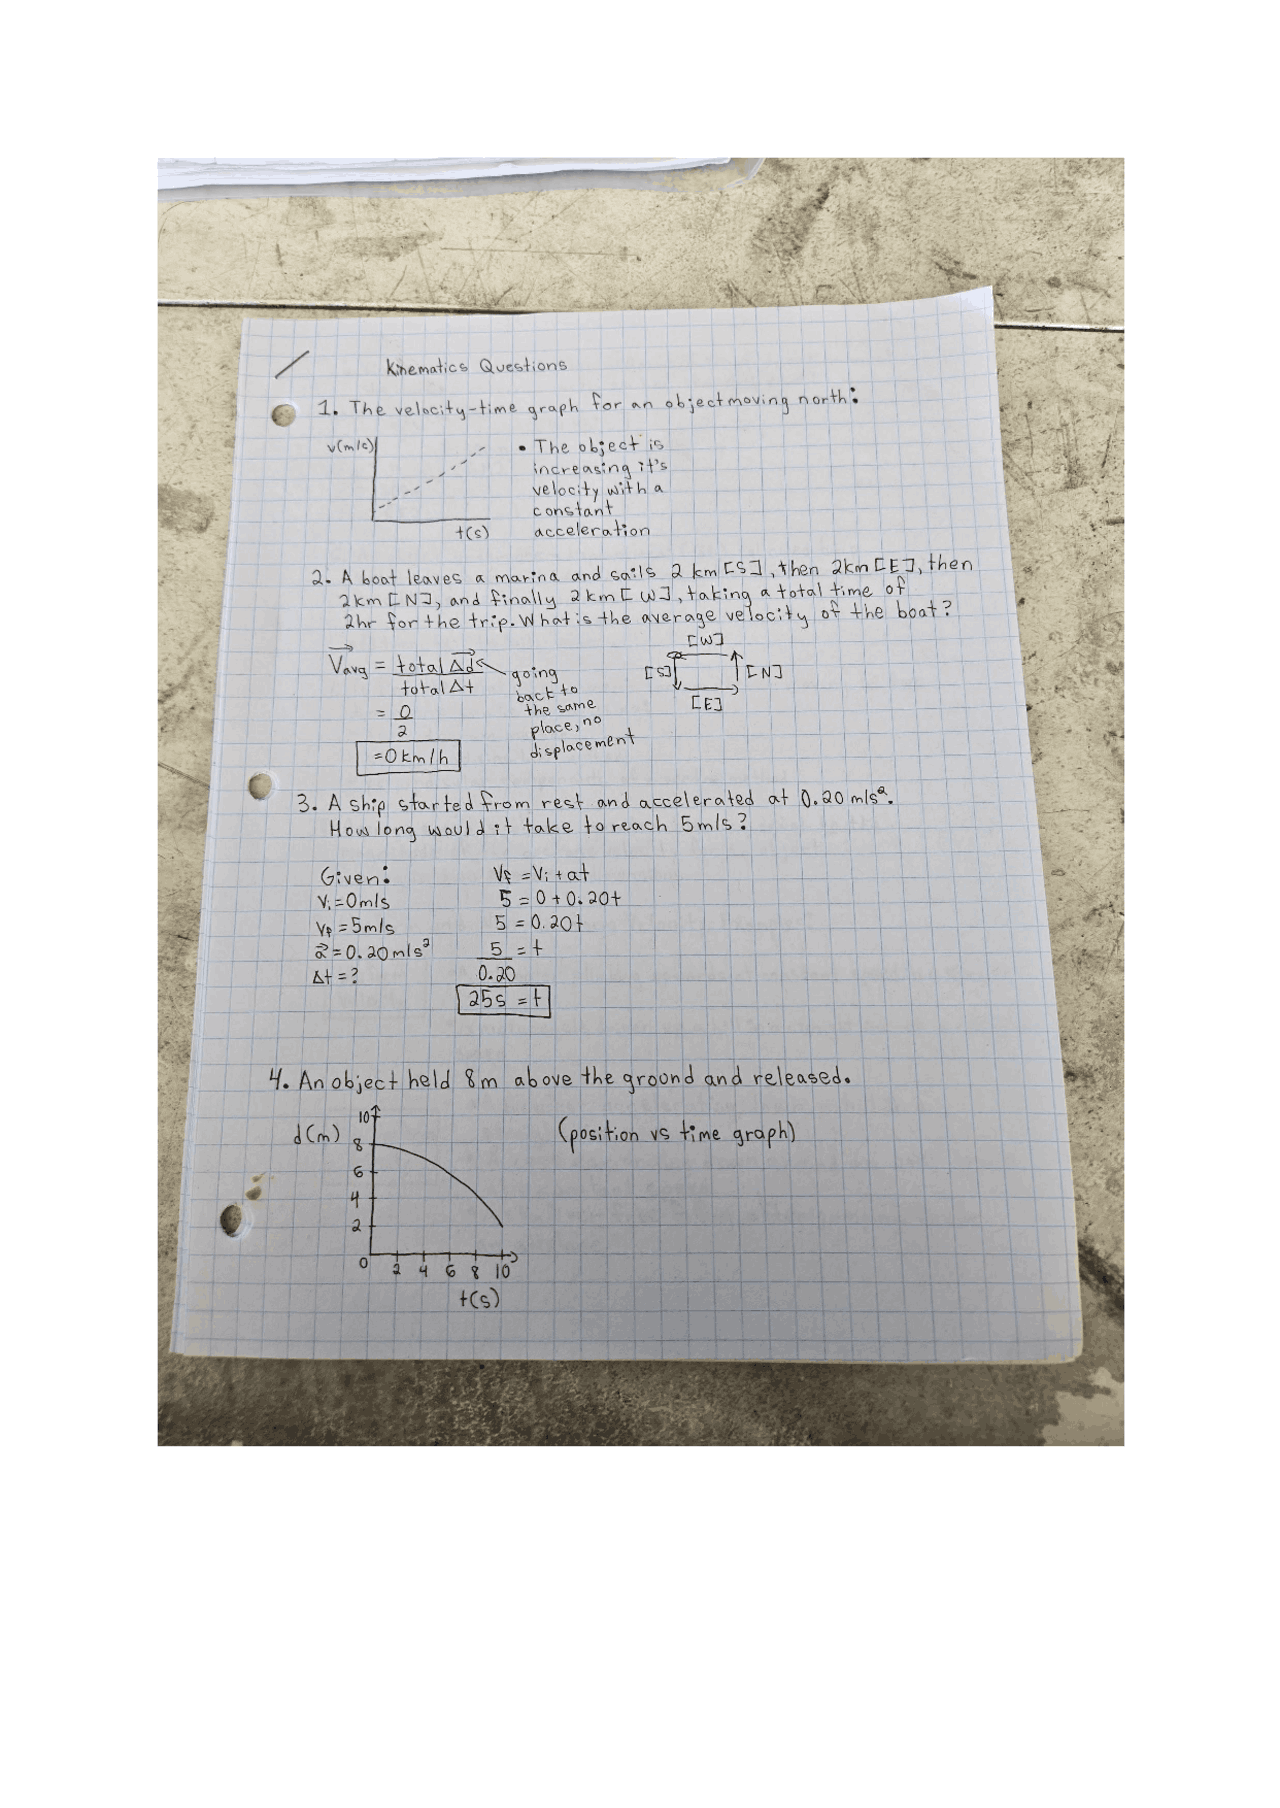 Kinematics Questions
1. The velocity-time graph for an object moving north:
v(m/s)
t(s)
• The object is
increasing it's
velocity with a
constant
acceleration
2. A boat leaves a marina and sails 2 km [S], then 2km [E], then
2km [N], and finally 2km [W], taking a total time of
2hr for the trip. What is the average velocity of the boat?
V⃗avg = total Δd⃗
total Δt
= 0
2
= 0 km/h
going
back to
the same
place, no
displacement
[W]
[S]
[N]
[E]
3. A ship started from rest and accelerated at 0.20 m/s².
How long would it take to reach 5m/s?
Given:
Vi = 0m/s
Vf = 5m/s
a⃗ = 0.20 m/s²
Δt = ?
Vf = Vi + at
5 = 0 + 0.20t
5 = 0.20t
5 = t
0.20
25s = t
4. An object held 8m above the ground and released.
d(m)
10
8
6
4
2
0
2 4 6 8 10
t(s)
(position vs time graph)